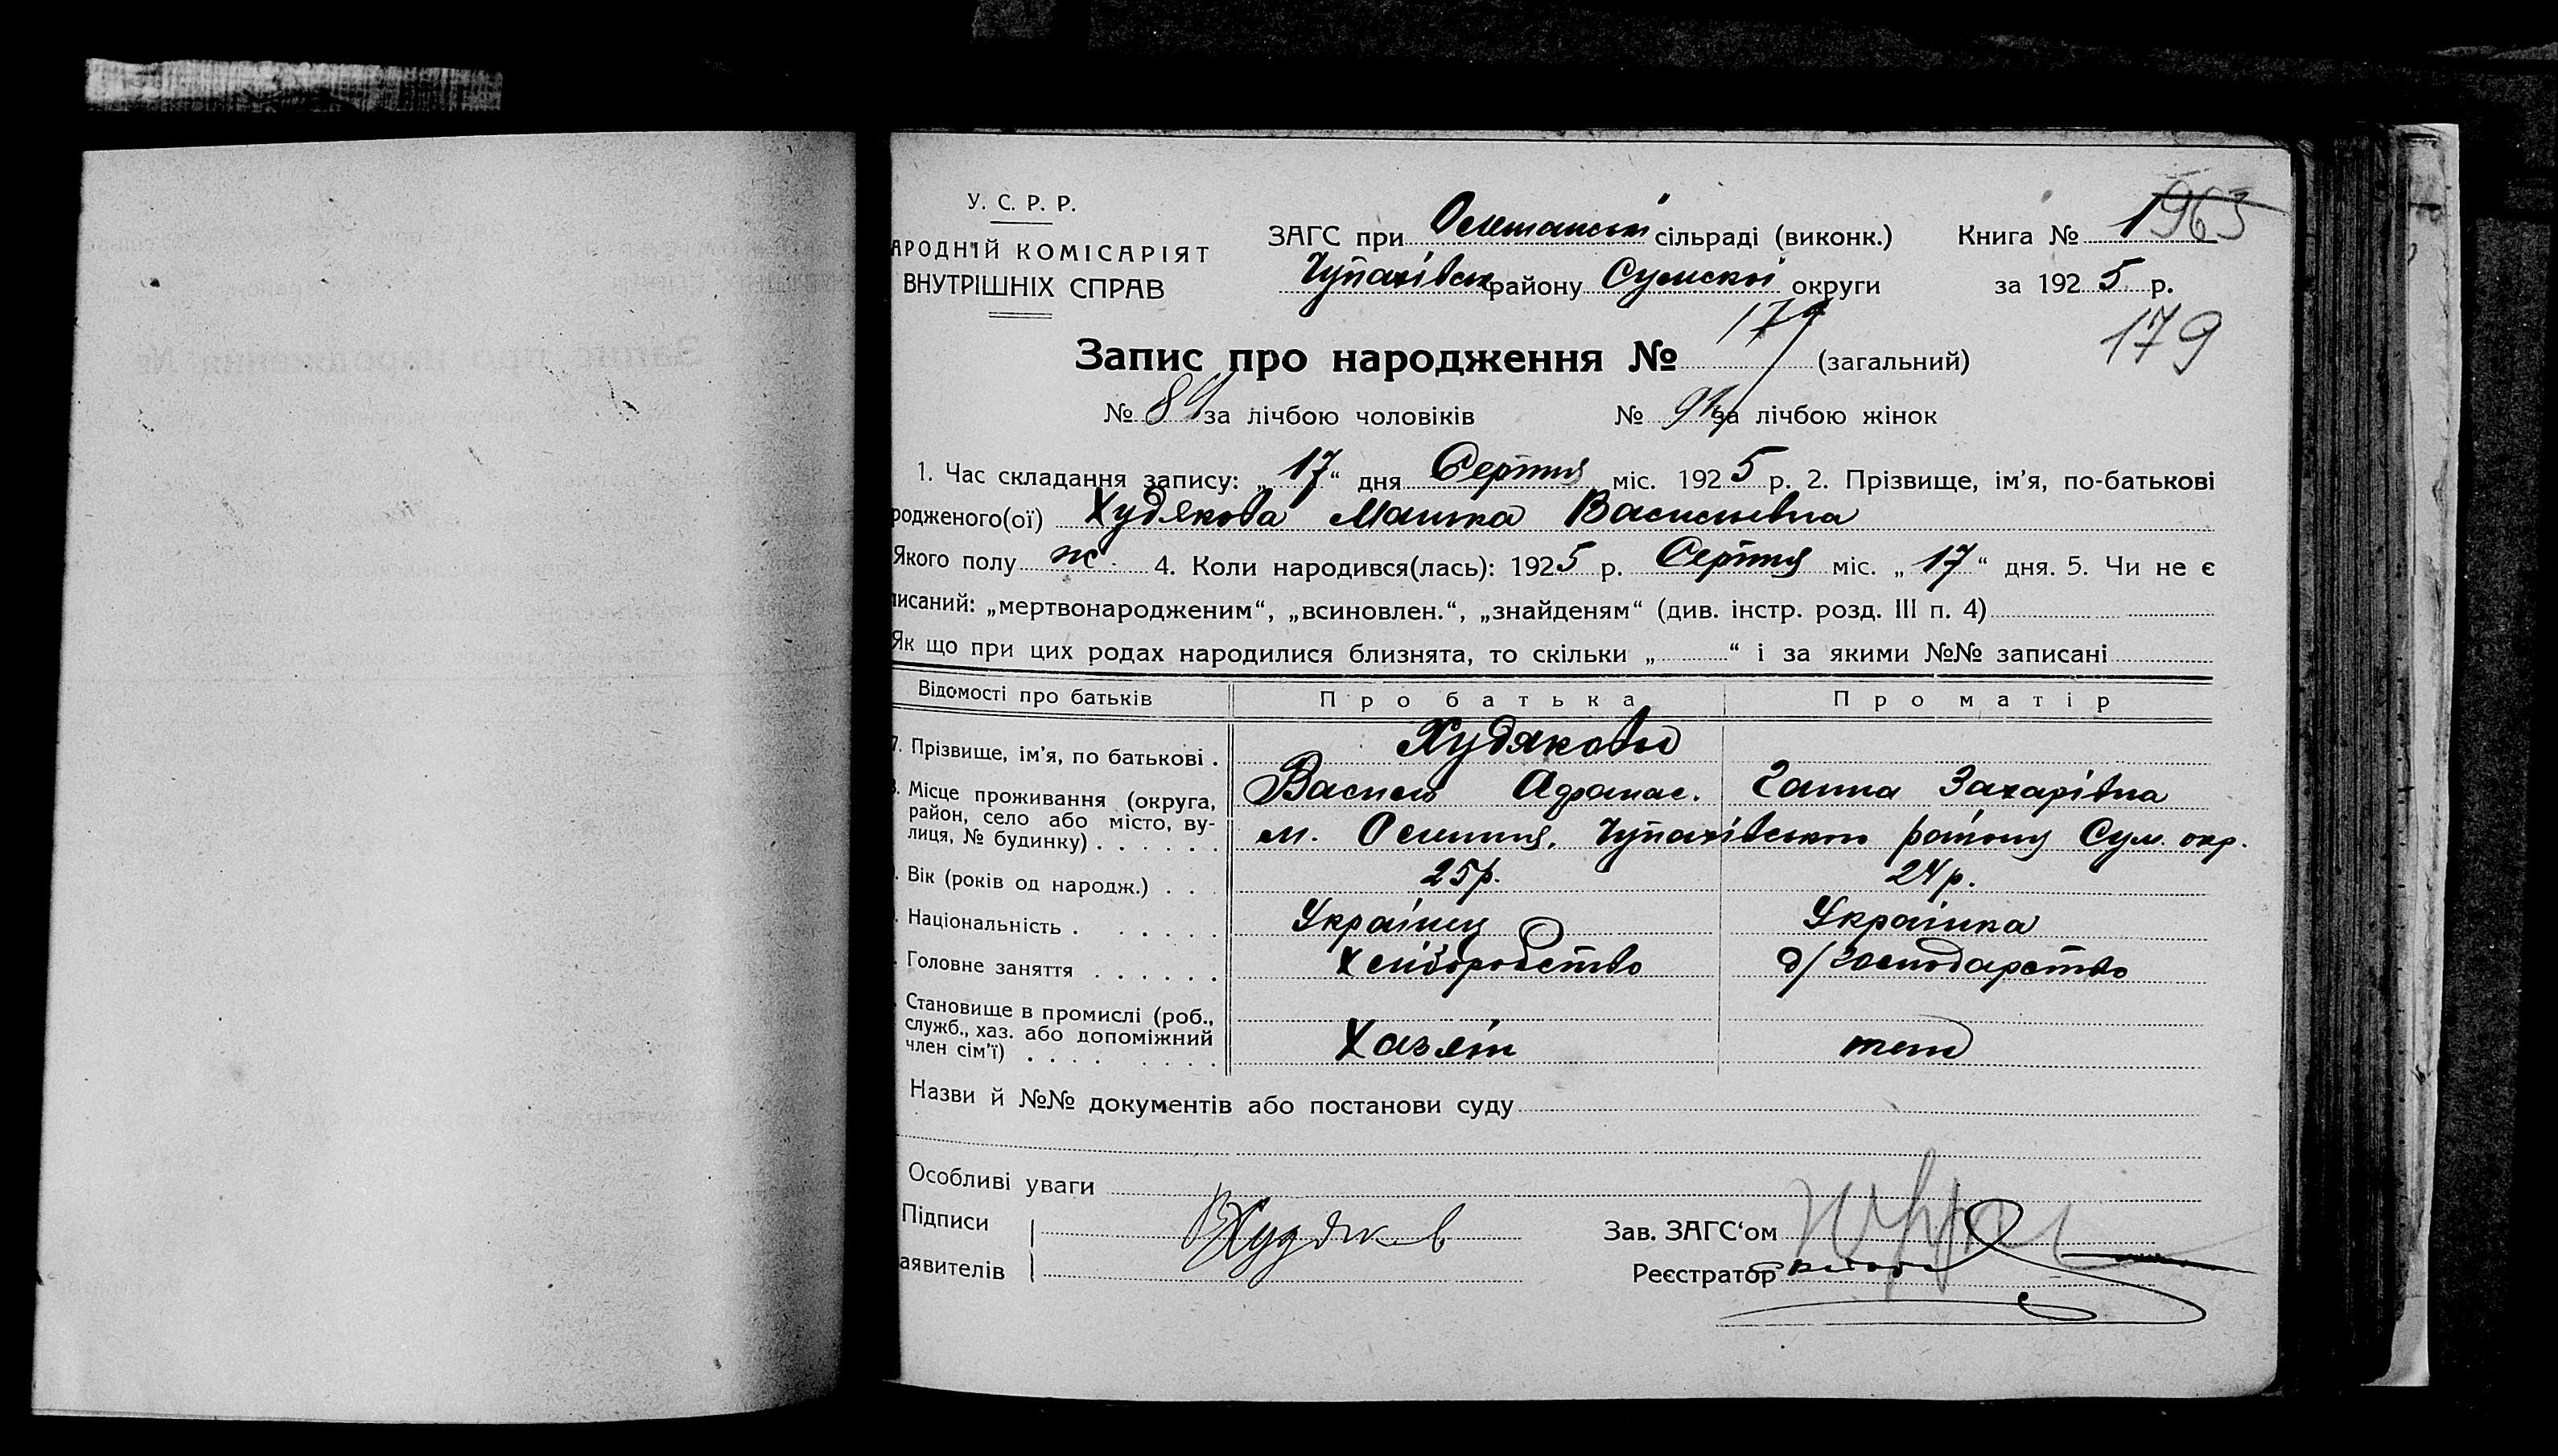 У. С. Р. Р.
АРОДНІЙ КОМІСАРІЯТ
ВНУТРІШНІХ СПРАВ
ЗАГС при Олешанській сільраді (виконк.) Книга № 1 963
Чупахівськ району Сумської округи за 1925 р.
179
Запис про народження № 179 (загальний)
№ за лічбою чоловіків № за лічбою жінок
1. Час складання запису: „17“ дня Серпня міс. 1925 р. 2. Прізвище, ім'я, по-батькові
родженого(ої) Худякова Васильівна
Якого полу ж. 4. Коли народився(лась): 1925 р. Серпня міс. „17“ дня. 5. Чи не є
писаний: „мертвонародженим“, „всиновлен.“, „знайденям“ (див. інстр. розд. III п. 4)
Як що при цих родах народилися близнята, то скільки „ “ і за якими №№ записані
Відомості про батьків Про батька Про матір
7. Прізвище, ім'я, по батькові . Худяковы
Василь Афанас. Ганна Захарівна
8. Місце проживання (округа, район, село або місто, вулиця, № будинку) . . . . . . м. Олешня, Чупахівського району Сум. окр.
Вік (років од народж.) . . . 25р. 24р.
Національність . . . . . . Українец Українка
Головне заняття . . . . . . Хліборобство д/господарство
Становище в промислі (роб.,
служб., хаз. або допоміжний
член сім'ї) . . . . . . . . Хазяїн член
Назви й №№ документів або постанови суду
Особливі уваги
Підписи ВХудяков Зав. ЗАГС'ом
аявителів Реєстратор